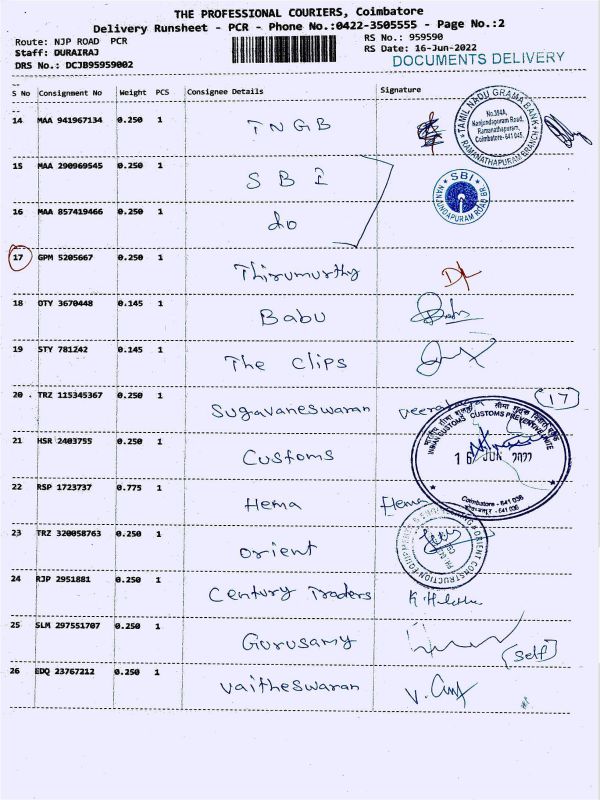 THE PROFESSIONAL COURIERS, Coimbatore
Delivery Runsheet - PCR - Phone No.:0422-3505555 - Page No.:2
Route: NJP ROAD PCR
RS No.: 959590
Staff: DURAIRAJ
RS Date: 16-Jun-2022
DRS No.: DCJB95959002
DOCUMENTS DELIVERY
S No Consignment No Weight PCS Consignee Details Signature
14 MAA 941967134 0.250 1 TNGB
TAMIL NADU GRAMA BANK
No.304A,
Nanjundapuram Road,
Ramanathapuram,
Coimbatore- 641 045.
RAMANATHAPURAM BRANCH
15 MAA 290969545 0.250 1 SBI
SBI
NANJUNDAPURAM ROAD BR.
16 MAA 857419466 0.250 1 do
17 GPM 5205667 0.250 1 Thirumurthy
18 OTY 3670448 0.145 1 Babu
19 STY 781242 0.145 1 The Clips
20 TRZ 115345367 0.250 1 Sugavaneswaran
(17)
21 HSR 2403755 0.250 1 Customs
INDIAN CUSTOMS CUSTOMS PREVENTIVE UNITE
16 JUN 2022
Coimbatore - 641 036
22 RSP 1723737 0.775 1 Hema Hema
23 TRZ 320058763 0.250 1 Orient
ORIENT CONSTRUCTION EQUIPMENTS
24 RJP 2951881 0.250 1 Century Traders
25 SLM 297551707 0.250 1 Gurusamy
(Self)
26 EDQ 23767212 0.250 1 Vaitheswaran